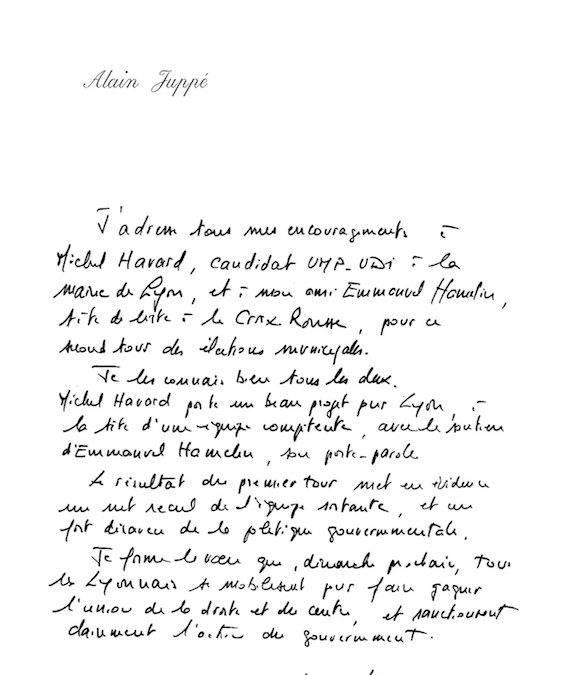 Alain Juppé
J'adresse tous mes encouragements à
Michel Havard, candidat UMP-UDI à la
mairie de Lyon, et à mon ami Emmanuel Hamelin,
tête de liste à la Croix Rousse, pour ce
second tour des élections municipales.
Je les connais bien tous les deux.
Michel Havard porte un beau projet pour Lyon, à
la tête d'une équipe compétente, avec le soutien
d'Emmanuel Hamelin, son porte-parole
Le résultat du premier tour met en évidence
un net recul de l'équipe sortante, et un
fort désaveu de la politique gouvernementale.
Je forme le vœu que, dimanche prochain, tous
les Lyonnais se mobilisent pour faire gagner
l'union de la droite et du centre, et sanctionnent
clairement l'action du gouvernement.